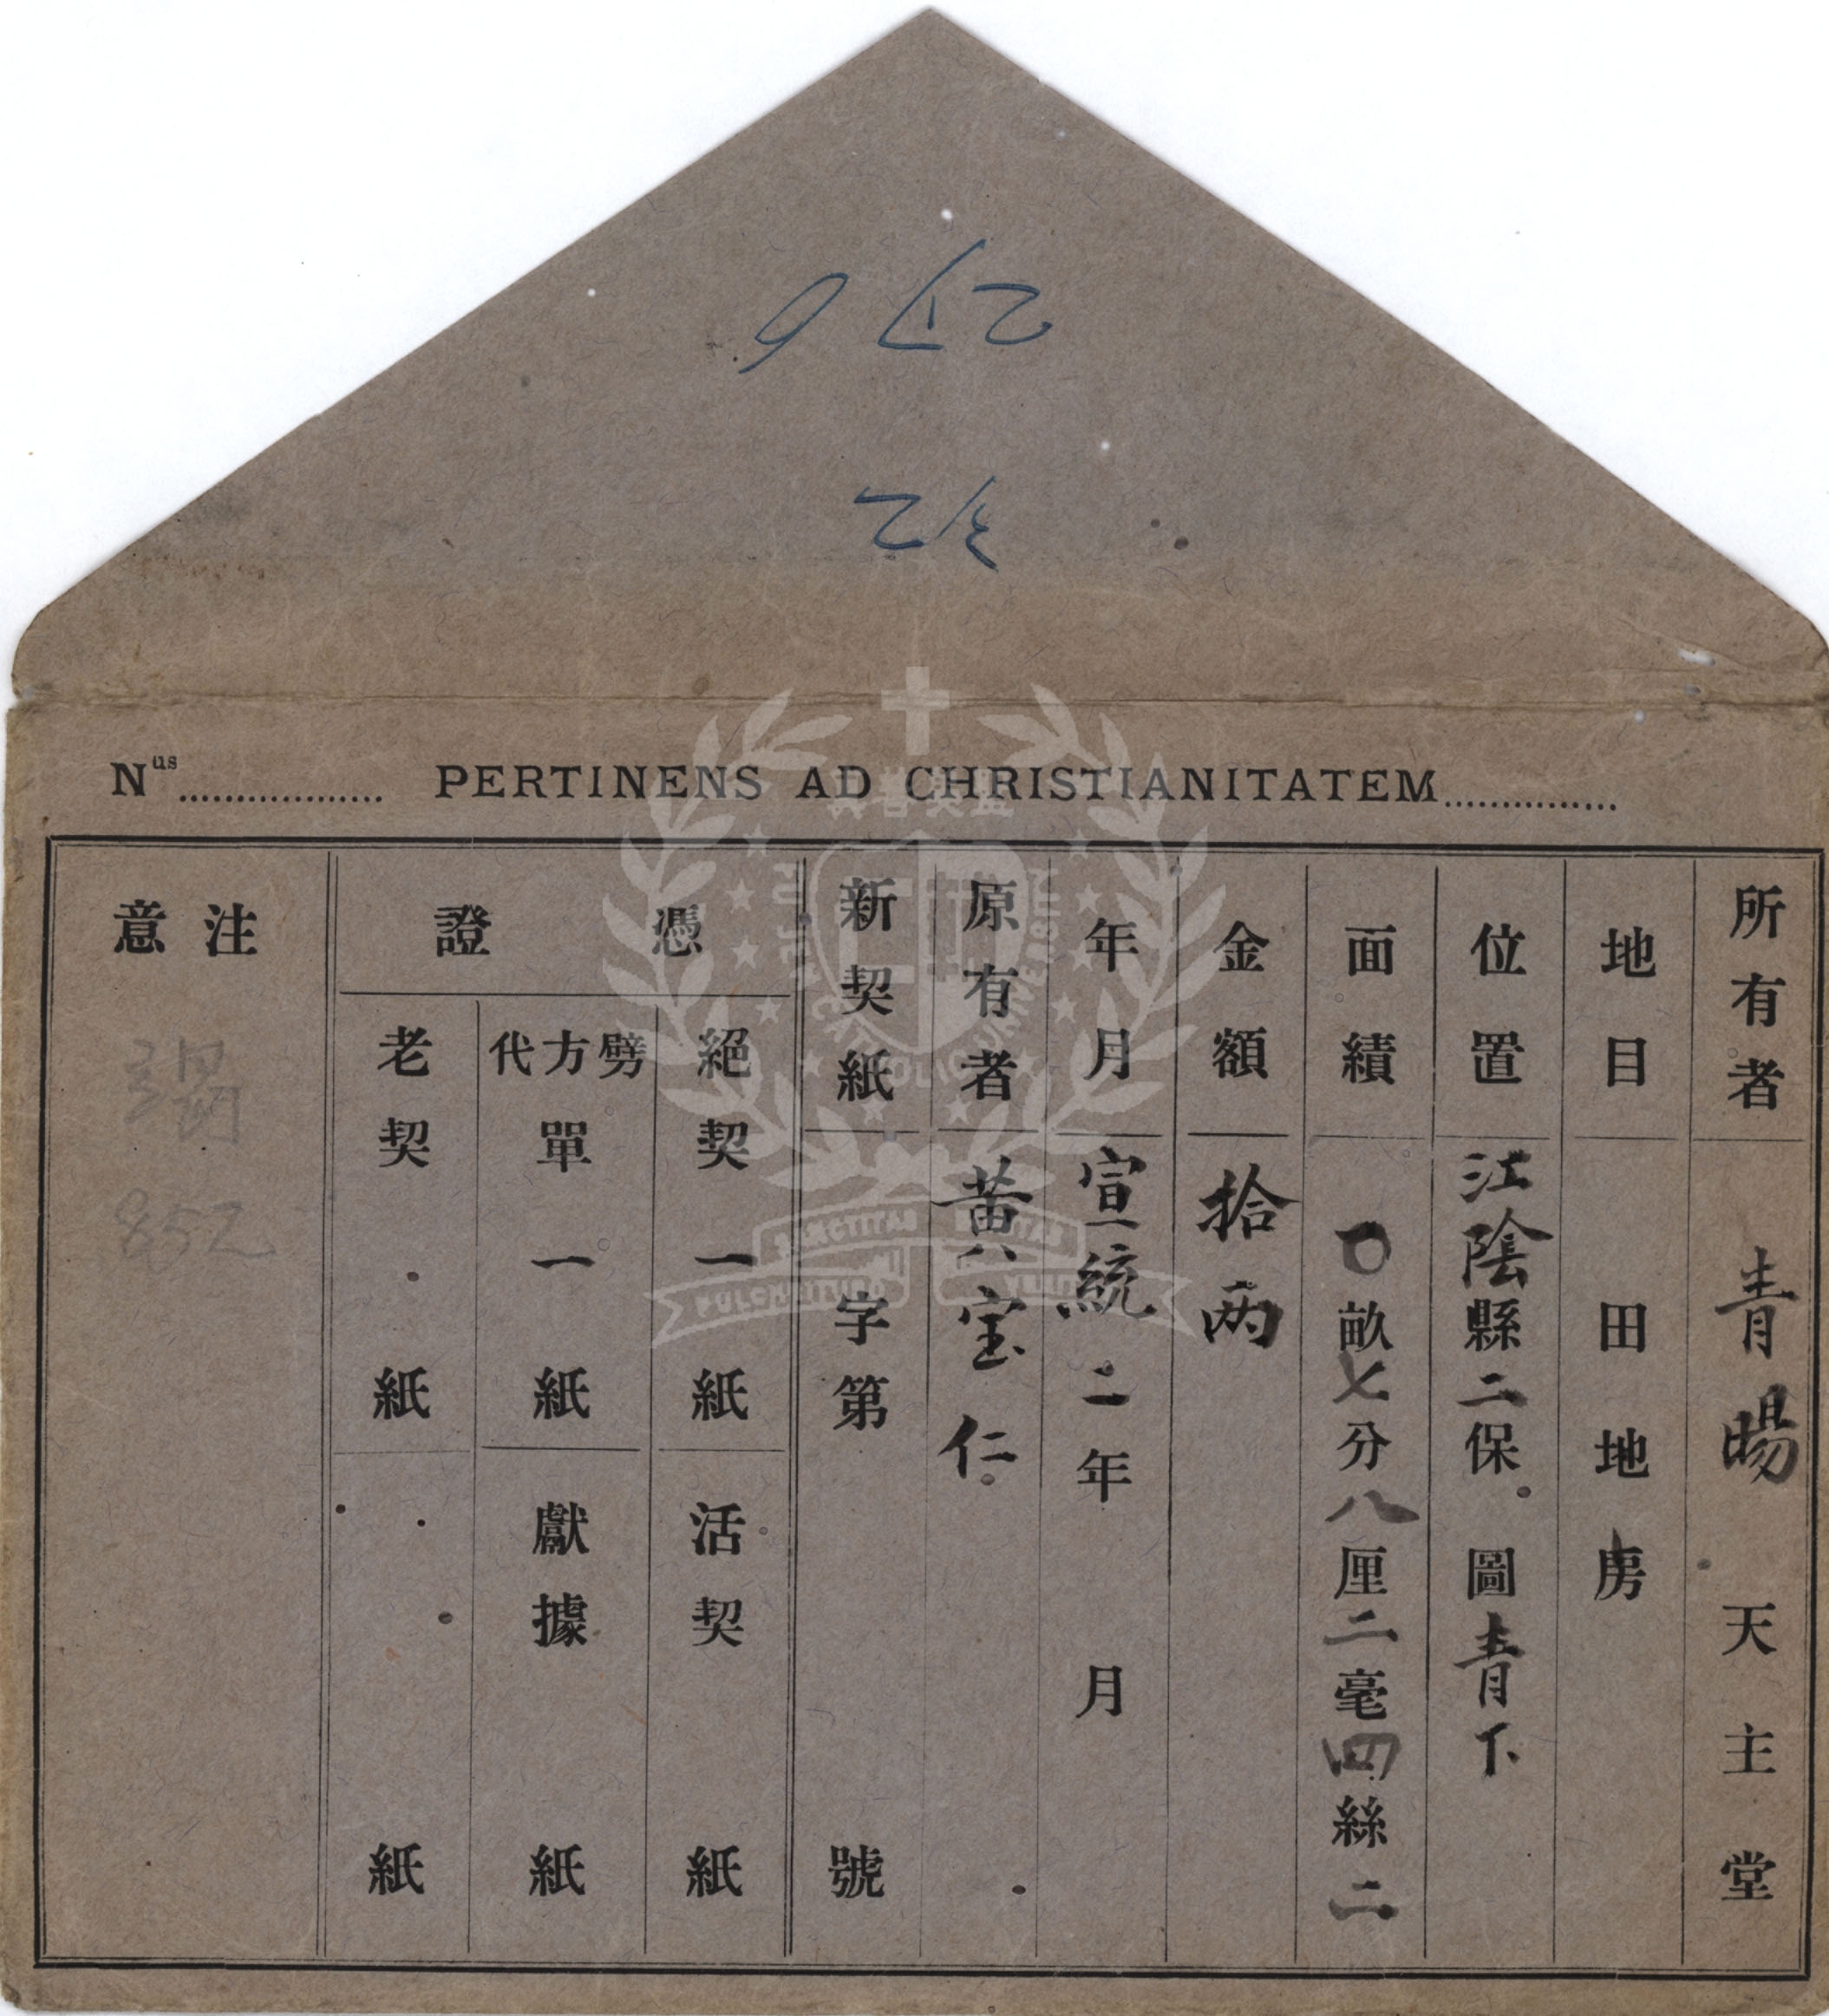 Nus.................. PERTINENS AD CHRISTIANITATEM...............
所有者 青暘 天主堂
地目 田地房
位置 江陰縣二保 圖青下
面績 〇畝七分八厘二毫四絲二
金額 拾兩
年月 宣統二年 月
原有者 黃宝仁
新契紙 字第 號
憑證
絕契 一 紙
活契 紙
劈方代單 一 紙
獻據 紙
老契 紙
紙
注意
852